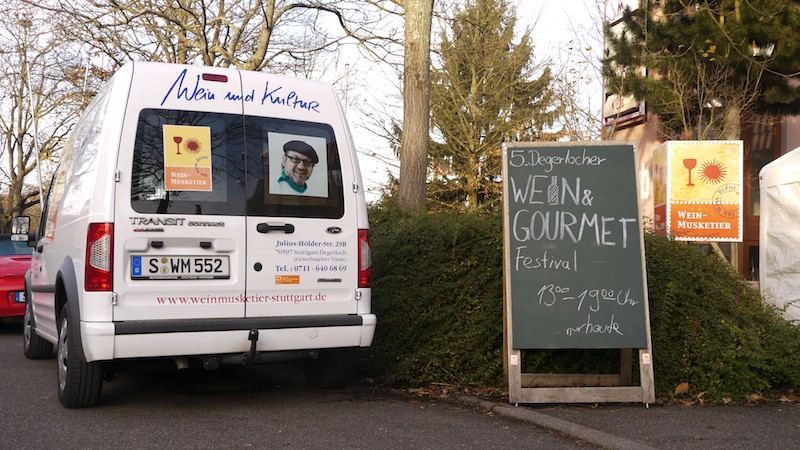 Wein und Kultur
WEIN-
MUSKETIER
TRANSIT connect
Julius-Hölder-Str. 29B
70597 Stuttgart-Degerloch
(Gewerbegebiet Tränke)
Tel.: 0711 - 640 68 69
D
S WM 552
www.weinmusketier-stuttgart.de
5. Degerlocher
WEIN &
GOURMET
Festival
13⁰⁰ - 19⁰⁰ Uhr
...nur heute
WEIN-
MUSKETIER